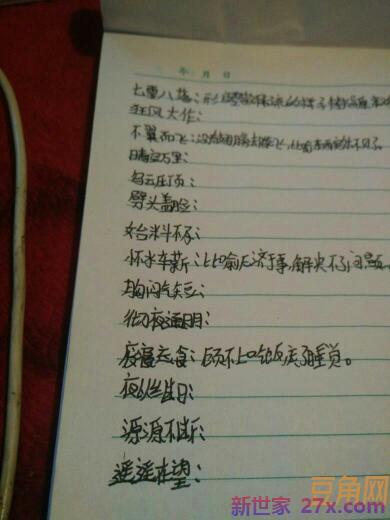 年 月 日
七零八落：形
狂风大作：
不翼而飞：没有翅膀去飞，比喻东西不见了
晴空万里：
乌云压顶：
劈头盖脸：
始料不及：
杯水车薪：比喻无济于事，解决不了问题
胸闷气短：
彻夜通明：
废寝忘食：顾不上吃饭，睡觉。
夜以继日：
源源不断：
遥遥在望：
豆角网
新世家 27x.com